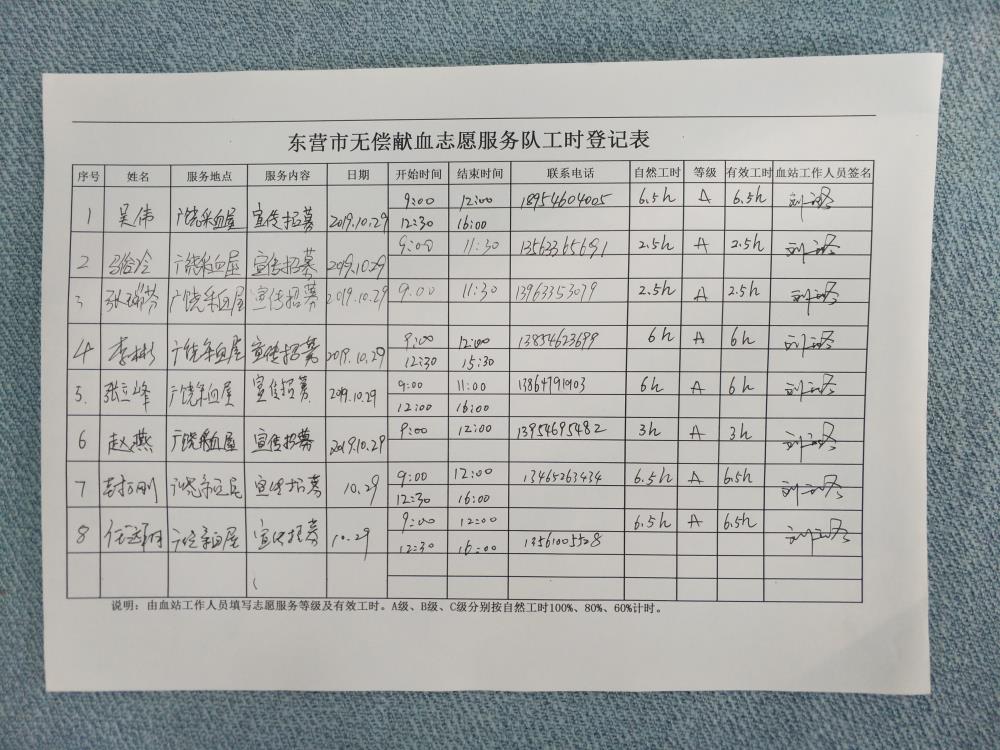 东营市无偿献血志愿服务队工时登记表
序号 姓名 服务地点 服务内容 日期 开始时间 结束时间 联系电话 自然工时 等级 有效工时 血站工作人员签名
1 吴伟 广饶采血屋 宣传招募 2019.10.29 9:00 12:00 18954604005 6.5h A 6.5h
12:30 16:00
2 广饶采血屋 宣传招募 2019.10.29 9:00 11:30 13563365691 2.5h A 2.5h
3 张瑞芬 广饶采血屋 宣传招募 2019.10.29 9:00 11:30 13963353079 2.5h A 2.5h
4 李彬 广饶采血屋 宣传招募 2019.10.29 9:00 12:00 13854623699 6h A 6h
12:30 15:30
5. 张立峰 广饶采血屋 宣传招募 2019.10.29 9:00 11:00 13864791903 6h A 6h
12:00 16:00
6 赵燕 广饶采血屋 宣传招募 2019.10.29 9:00 12:00 13954695482 3h A 3h
7 广饶采血屋 宣传招募 10.29 9:00 12:00 13465263434 6.5h A 6.5h
12:30 16:00
8 广饶采血屋 宣传招募 10.29 9:00 12:00 6.5h A 6.5h
12:30 16:00 13561005528
说明：由血站工作人员填写志愿服务等级及有效工时。A级、B级、C级分别按自然工时100%、80%、60%计时。